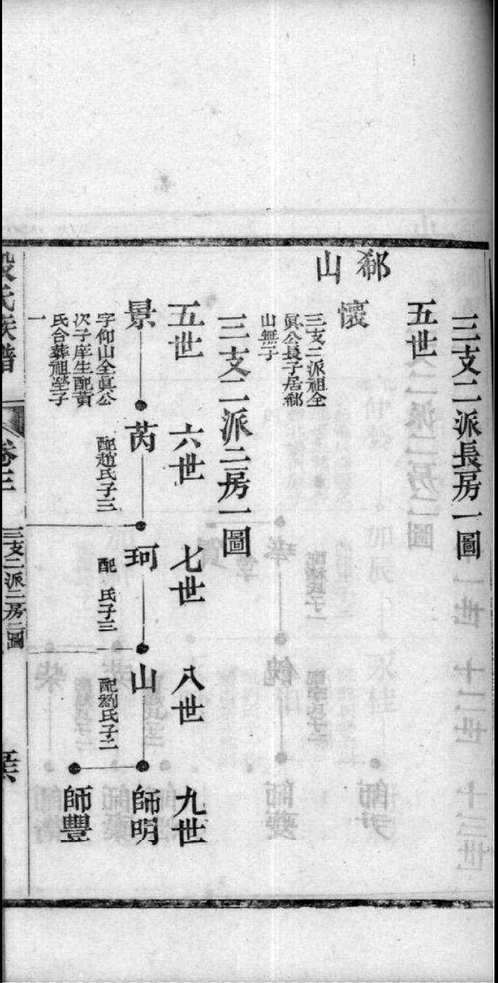 三支二派長房一圖
五世
郗山
懷
三支二派祖全
眞公長子居郗
山無子
三支二派二房一圖
五世 六世 七世 八世 九世
景 芮 珂 山 師明
字仰山全眞公
次子庠生配黃
氏合葬祖塋子
一
配趙氏子三
配 氏子三
配劉氏子二
師豐
氏族譜
卷三
三支二派二房二圖